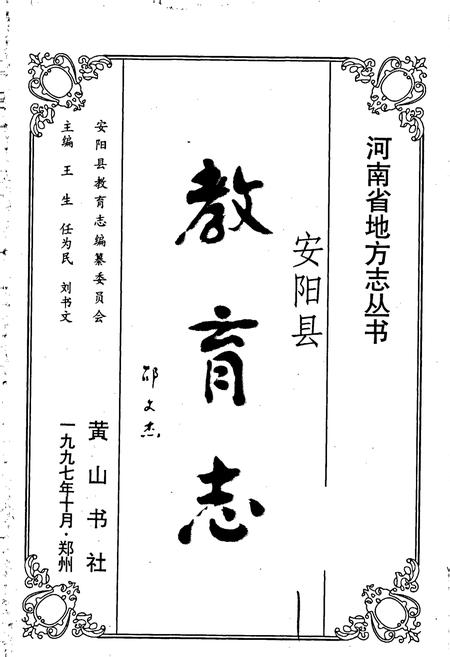 河南省地方志丛书
安阳县
教育志
邵文杰
安阳县教育志编纂委员会
主编 王生 任为民 刘书文
黄山书社
一九九七年十月·郑州